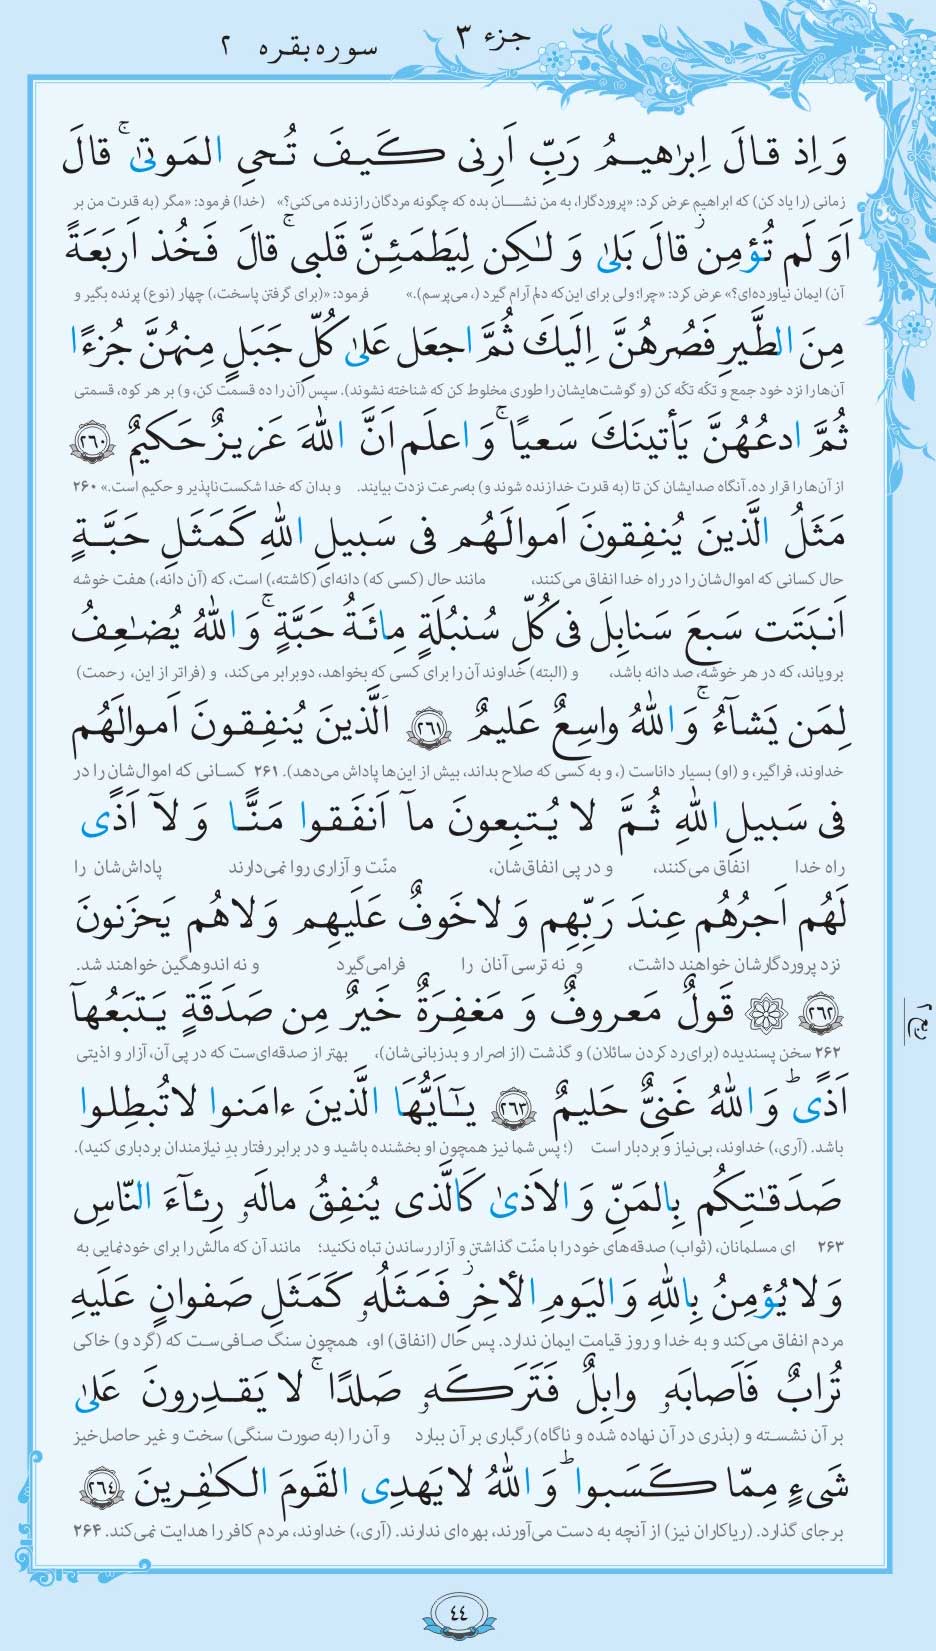 جزء ۳
سوره بقره ۲
وَ اِذ قالَ اِبراهیمُ رَبِّ اَرِنی کَیفَ تُحیِ المَوتیٰ ۚ قالَ
زمانی (را یاد کن) که ابراهیم عرض کرد: «پروردگارا، به من نشان بده که چگونه مردگان را زنده می‌کنی؟» (خدا) فرمود: «مگر (به قدرت من بر
اَوَ لَم تُؤمِن ۖ قالَ بَلیٰ وَ لٰکِن لِیَطمَئِنَّ قَلبی ۚ قالَ فَخُذ اَربَعَةً
آن) ایمان نیاورده‌ای؟» عرض کرد: «چرا؛ ولی برای این‌که دلم آرام گیرد (، می‌پرسم).» فرمود: «(برای گرفتن پاسخت،) چهار (نوع) پرنده بگیر و
مِنَ الطَّیرِ فَصُرهُنَّ اِلَیكَ ثُمَّ اجعَل عَلیٰ کُلِّ جَبَلٍ مِنهُنَّ جُزءًا
آن‌ها را نزد خود جمع و تکّه تکّه کن (و گوشت‌هایشان را طوری مخلوط کن که شناخته نشوند). سپس (آن را ده قسمت کن، و) بر هر کوه، قسمتی
ثُمَّ ادعُهُنَّ یَأتینَكَ سَعیًا ۚ وَ اعلَم اَنَّ اللهَ عَزیزٌ حَکیمٌ ﴿۲۶۰﴾
از آن‌ها را قرار ده. آنگاه صدایشان کن تا (به قدرت خدا زنده شوند و) به‌سرعت نزدت بیایند. و بدان که خدا شکست‌ناپذیر و حکیم است.» ۲۶۰
مَثَلُ الَّذینَ یُنفِقونَ اَموالَهُم فی سَبیلِ اللهِ کَمَثَلِ حَبَّةٍ
حال کسانی که اموال‌شان را در راه خدا انفاق می‌کنند، مانند حال (کسی که) دانه‌ای (کاشته،) است، که (آن دانه،) هفت خوشه
اَنبَتَت سَبعَ سَنابِلَ فی کُلِّ سُنبُلَةٍ مِائَةُ حَبَّةٍ ۗ وَ اللهُ یُضٰعِفُ
برویاند، که در هر خوشه، صد دانه باشد، و (البته) خداوند آن را برای کسی که بخواهد، دوبرابر می‌کند، و (فراتر از این، رحمت)
لِمَن یَشآءُ ۚ وَ اللهُ واسِعٌ عَلیمٌ ﴿۲۶۱﴾ اَلَّذینَ یُنفِقونَ اَموالَهُم
خداوند، فراگیر، و (او) بسیار داناست (، و به کسی که صلاح بداند، بیش از این‌ها پاداش می‌دهد). ۲۶۱ کسانی که اموال‌شان را در
فی سَبیلِ اللهِ ثُمَّ لا یُتبِعونَ مآ اَنفَقوا مَنًّا وَ لآ اَذًی
راه خدا انفاق می‌کنند، و در پی انفاق‌شان، منّت و آزاری روا نمی‌دارند پاداش‌شان را
لَهُم اَجرُهُم عِندَ رَبِّهِم وَ لا خَوفٌ عَلَیهِم وَ لا هُم یَحزَنونَ
نزد پروردگارشان خواهند داشت، و نه ترسی آنان را فرامی‌گیرد و نه اندوهگین خواهند شد.
﴿۲۶۲﴾ قَولٌ مَعروفٌ وَ مَغفِرَةٌ خَیرٌ مِن صَدَقَةٍ یَتبَعُهآ
۲۶۲ سخن پسندیده (برای رد کردن سائلان) و گذشت (از اصرار و بدزبانی‌شان)، بهتر از صدقه‌ای‌ست که در پی آن، آزار و اذیتی
اَذًی ۗ وَ اللهُ غَنِیٌّ حَلیمٌ ﴿۲۶۳﴾ یٰٓاَیُّهَا الَّذینَ ءامَنوا لا تُبطِلوا
باشد. (آری،) خداوند، بی‌نیاز و بردبار است (؛ پس شما نیز همچون او بخشنده باشید و در برابر رفتار بدِ نیازمندان بردباری کنید).
صَدَقٰتِکُم بِالمَنِّ وَ الاَذیٰ کَالَّذی یُنفِقُ مالَهو رِئآءَ النّاسِ
۲۶۳ ای مسلمانان، (ثواب) صدقه‌های خود را با منّت گذاشتن و آزار رساندن تباه نکنید؛ مانند آن که مالش را برای خودنمایی به
وَ لا یُؤمِنُ بِاللهِ وَ الیَومِ الأخِرِ ۖ فَمَثَلُهو کَمَثَلِ صَفوانٍ عَلَیهِ
مردم انفاق می‌کند و به خدا و روز قیامت ایمان ندارد. پس حال (انفاق) او، همچون سنگ صافی‌ست که (گرد و) خاکی
تُرابٌ فَاَصابَهو وابِلٌ فَتَرَکَهو صَلدًا ۖ لا یَقدِرونَ عَلیٰ
بر آن نشسته و (بذری در آن نهاده شده و ناگاه) رگباری بر آن ببارد و آن را (به صورت سنگی) سخت و غیر حاصل‌خیز
شَیءٍ مِمّا کَسَبوا ۗ وَ اللهُ لا یَهدِی القَومَ الکٰفِرینَ ﴿۲۶۴﴾
بر جای گذارد. (ریاکاران نیز) از آنچه به دست می‌آورند، بهره‌ای ندارند. (آری،) خداوند، مردم کافر را هدایت نمی‌کند. ۲۶۴
۴۴